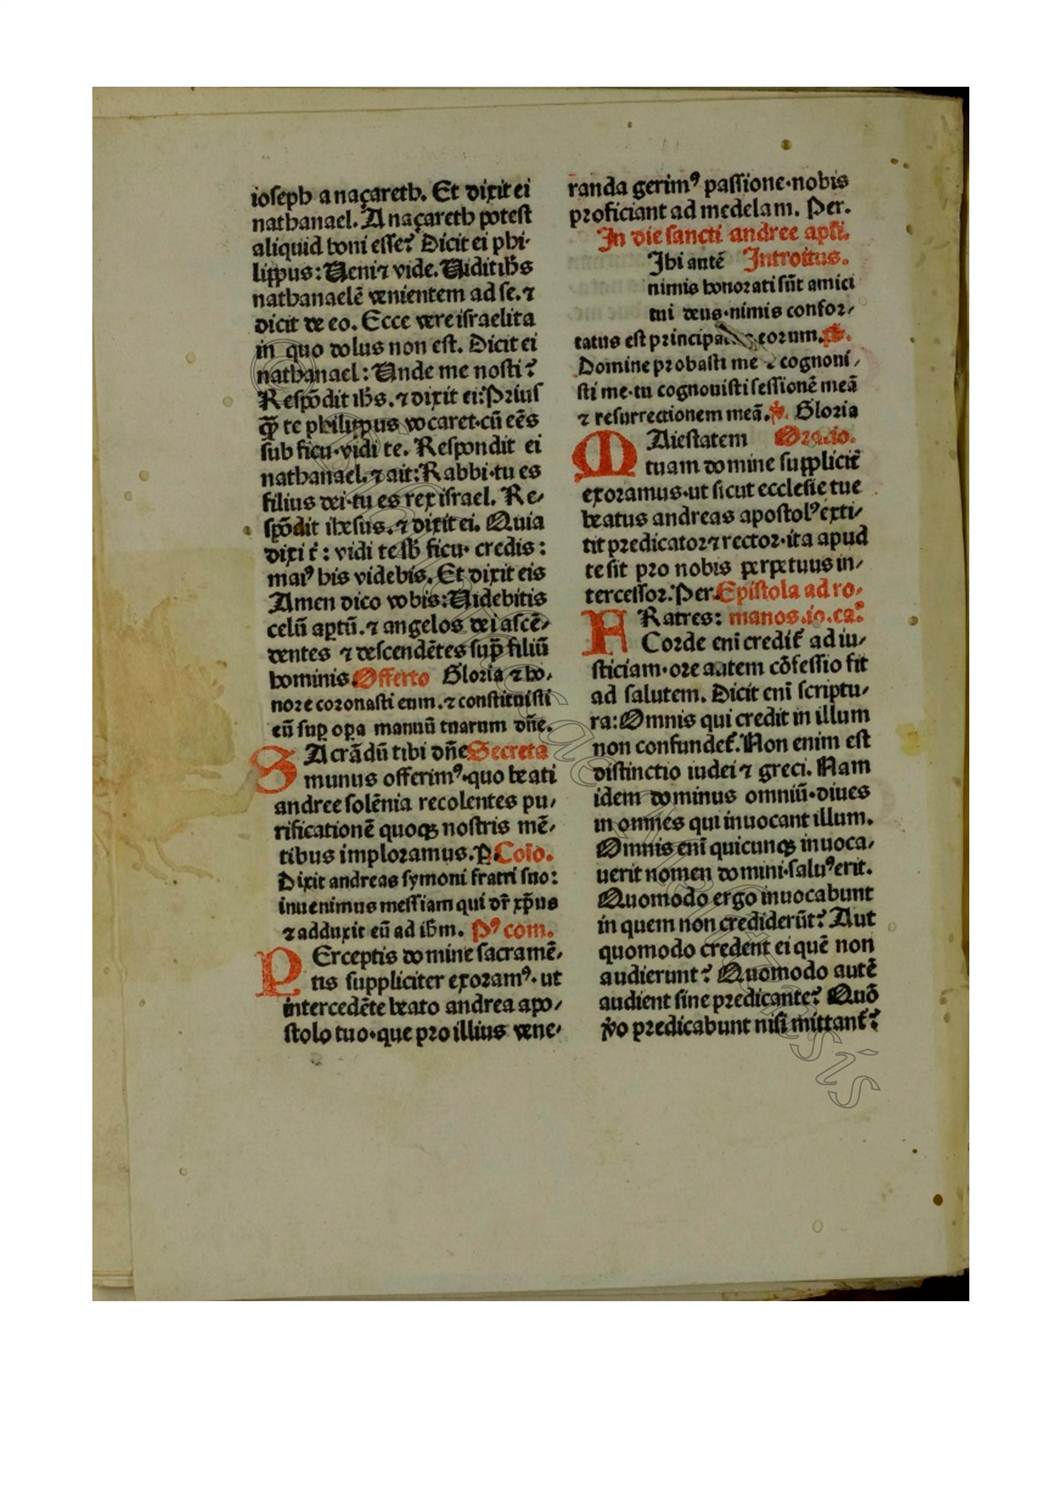 ioseph a naçareth. Et dixit ei
nathanael. A naçareth potest
aliquid boni esse? Dicit ei phi-
lippus: Ueni ⁊ vide. Uidit ihs̄
nathanaelē venientem ad se. ⁊
dicit de eo. Ecce vere israelita
in quo dolus non est. Dicit ei
nathanael: Unde me nosti?
Respōdit ihs̄. ⁊ dixit ei: Prius
qꝫ te philippus vocaret·cū eēs
sub ficu·vidi te. Respondit ei
nathanael. ⁊ ait: Rabbi·tu es
filius dei·tu es rex israel. Re-
spōdit ihesus. ⁊ dixit ei. Quia
dixi t̄: vidi te sb̄ ficu· credis:
maiꝰ his videbis. Et dixit eis
Amen dico vobis: Uidebitis
celū aptū. ⁊ angelos dei ascē-
dentes ⁊ descendētes sup̄ filiū
hominis. Offerto Gloria ⁊ ho-
nore coronasti eum. ⁊ constituisti
eū sup opa manuū tuarum dn̄e.
SAcrādū tibi dn̄e Secreta
munus offerimꝰ·quo beati
andree solēnia recolentes pu-
rificationē quoqꝫ nostris mē-
tibus imploramus. P. Coīo.
Dixit andreas symoni fratri suo:
inuenimus messiam qui dr̄ xp̄us
⁊ adduxit eū ad ih̄m. Pꝰ com.
PErceptis domine sacramē-
tis suppliciter exoramꝰ· ut
intercedēte beato andrea apo-
stolo tuo·que pro illius vene-
randa gerimꝰ passione·nobis
proficiant ad medelam. Per.
In die sancti andree apl̄i.
Ihi autē Introitus.
nimis honorati sūt amici
tui deus·nimis confor-
tatus est principatus eorum. ps.
Domine probasti me ⁊ cognoui-
sti me·tu cognouisti sessionē meā
⁊ resurrectionem meā. ℣. Gloria
MAiestatem Oracio.
tuam domine supplicit̄
exoramus·ut sicut ecclesie tue
beatus andreas apostolꝰ exti-
tit predicator ⁊ rector·ita apud
te sit pro nobis perpetuus in-
tercessor. Per. Epistola ad ro-
FRatres: manos. io. ca?
Corde enī credit̄ ad iu-
sticiam·ore autem cōfessio fit
ad salutem. Dicit enī scriptu-
ra: Omnis qui credit in illum
non confundet̄. Non enim est
distinctio iudei ⁊ greci. Nam
idem dominus omniū·diues
in omnes qui inuocant illum.
Omnis enī quicunqꝫ inuoca-
uerit nomen domini·saluꝰ erit.
Quomodo ergo inuocabunt
in quem non crediderūt? Aut
quomodo credent ei quē non
audierunt? Quomodo autē
audient sine predicante? Quō
v̊o predicabunt nisi mittant̄?